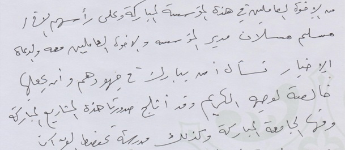 من الإخوة العاملين في هذه المؤسسة المباركة وعلى رأسهم الأخ /
مسلم مسلاف مدير المؤسسه والإخوة العاملين معه والدعاة
الأخيار نسأل الله أن يبارك في جهودهم وأن يجعلها
خالصة لوجهه الكريم وقد أثلج صدورنا هذه المشاريع المباركة
ومنها الجامعة المباركة وكذلك مدرسة تحفيظ القرآن